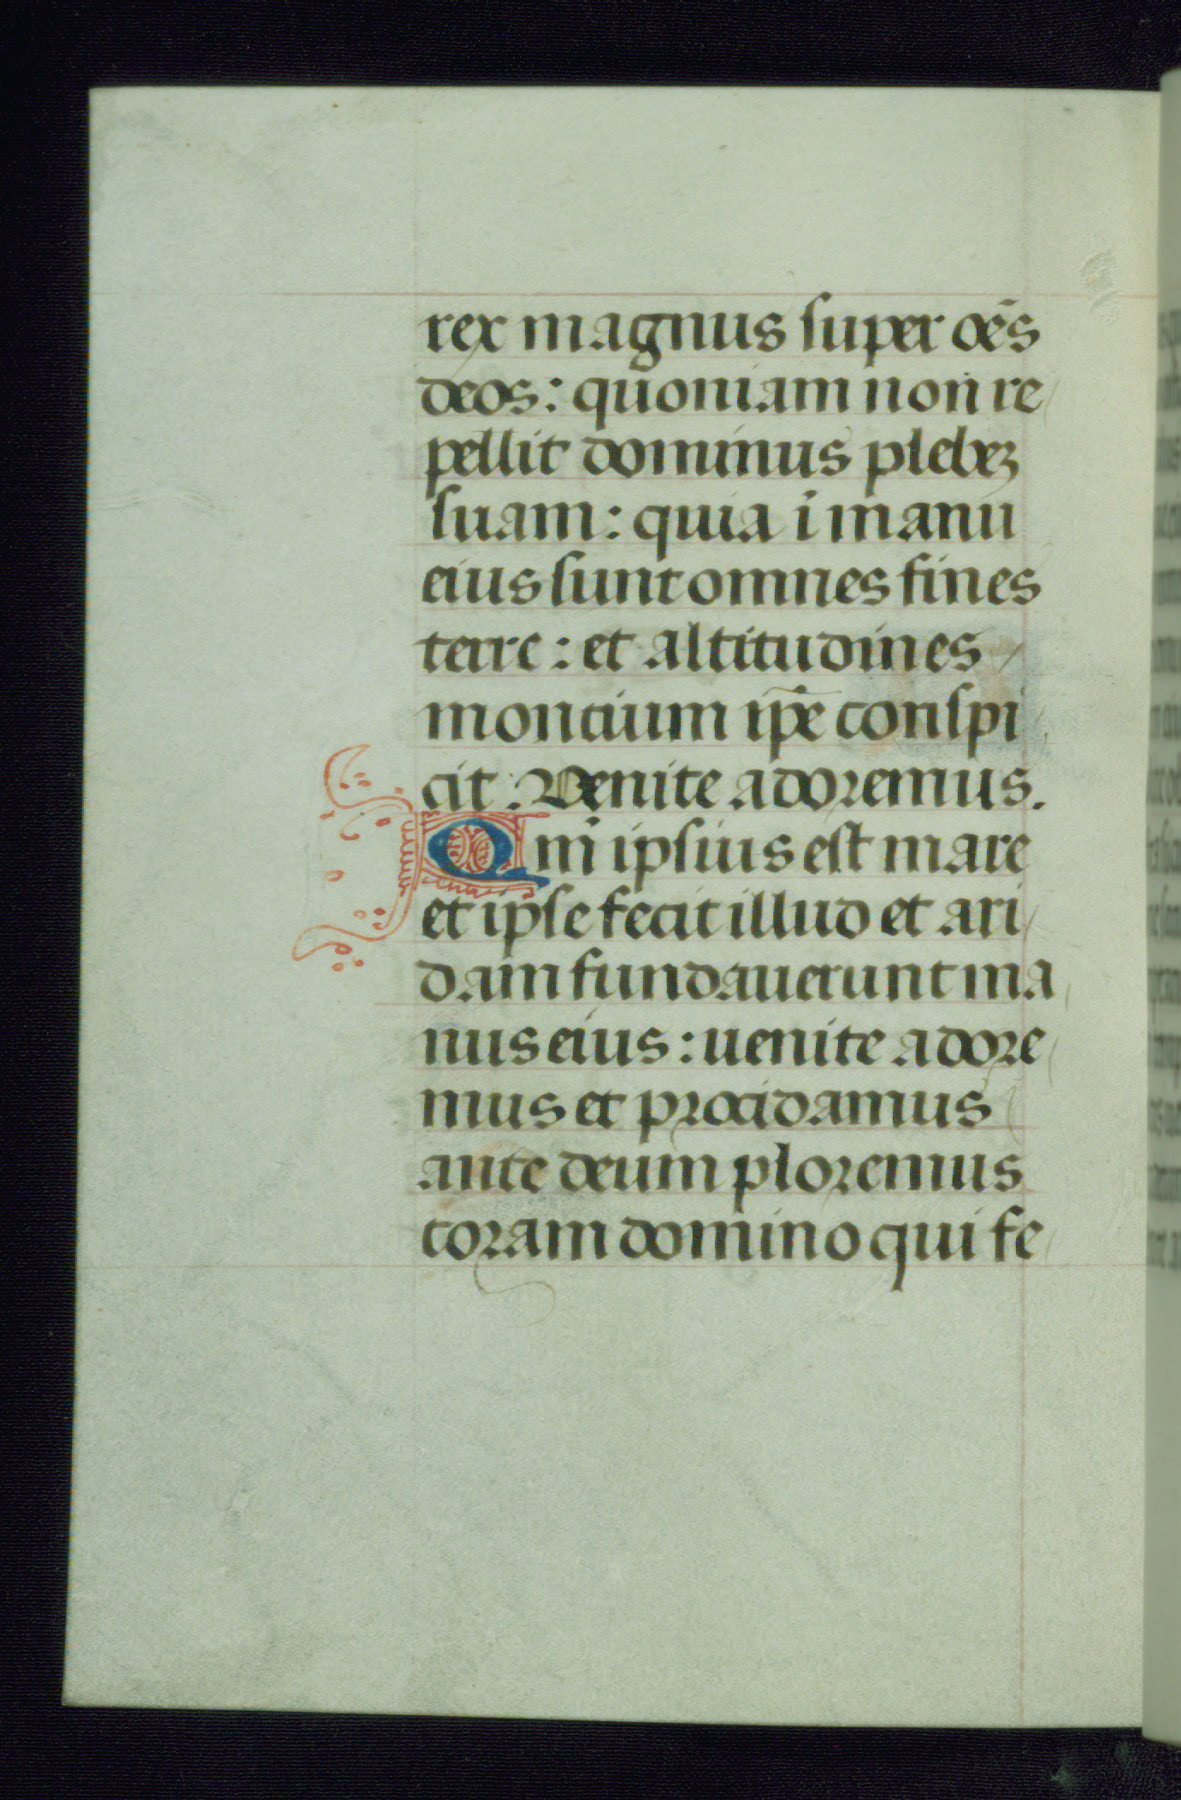 rex magnus super oẽs
deos: quoniam non re
pellit dominus plebeȝ
suam: quia ĩ manu
eius sunt omnes fines
terre: et altitudines
montium ip̃e conspi
cit: Venite adoremus.
Qm̃ ipsius est mare
et ipse fecit illud et ari
dam fundauerunt ma
nus eius: uenite adore
mus et procidamus
ante deum ploremus
coram domino qui fe